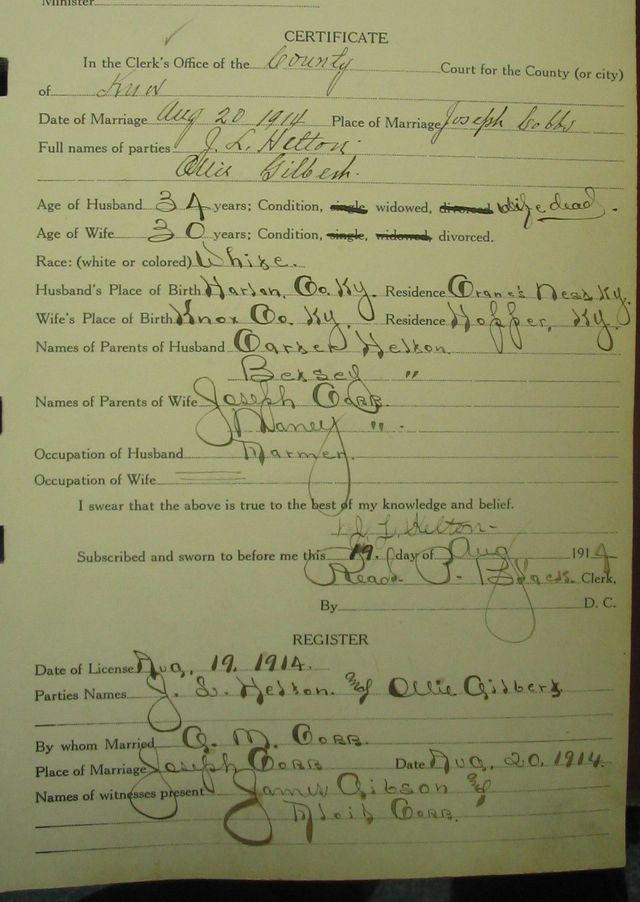 Minister
CERTIFICATE
In the Clerk's Office of the County Court for the County (or city)
of Knox
Date of Marriage Aug 20 1914 Place of Marriage Joseph Cobbs
Full names of parties J. L. Helton
Ollie Gilbert.
Age of Husband 34 years; Condition, single, widowed, divorced wife dead.
Age of Wife 30 years; Condition, single, widowed, divorced.
Race: (white or colored) White.
Husband's Place of Birth Harlan, Co. Ky. Residence Crane's Nest Ky.
Wife's Place of Birth Knox Co. Ky. Residence Hopper, Ky.
Names of Parents of Husband Carter Helton.
Betsey "
Names of Parents of Wife Joseph Cobb.
Nancy "
Occupation of Husband Farmer.
Occupation of Wife
I swear that the above is true to the best of my knowledge and belief.
J. L. Helton
Subscribed and sworn to before me this 19. day of Aug 1914
Read P. Black Clerk,
By D. C.
REGISTER
Date of License Aug, 19, 1914.
Parties Names J. L. Helton. and Ollie Gilbert
By whom Married G. M. Cobb.
Place of Marriage Joseph Cobb Date Aug, 20, 1914.
Names of witnesses present James Gibson and
Cobb.